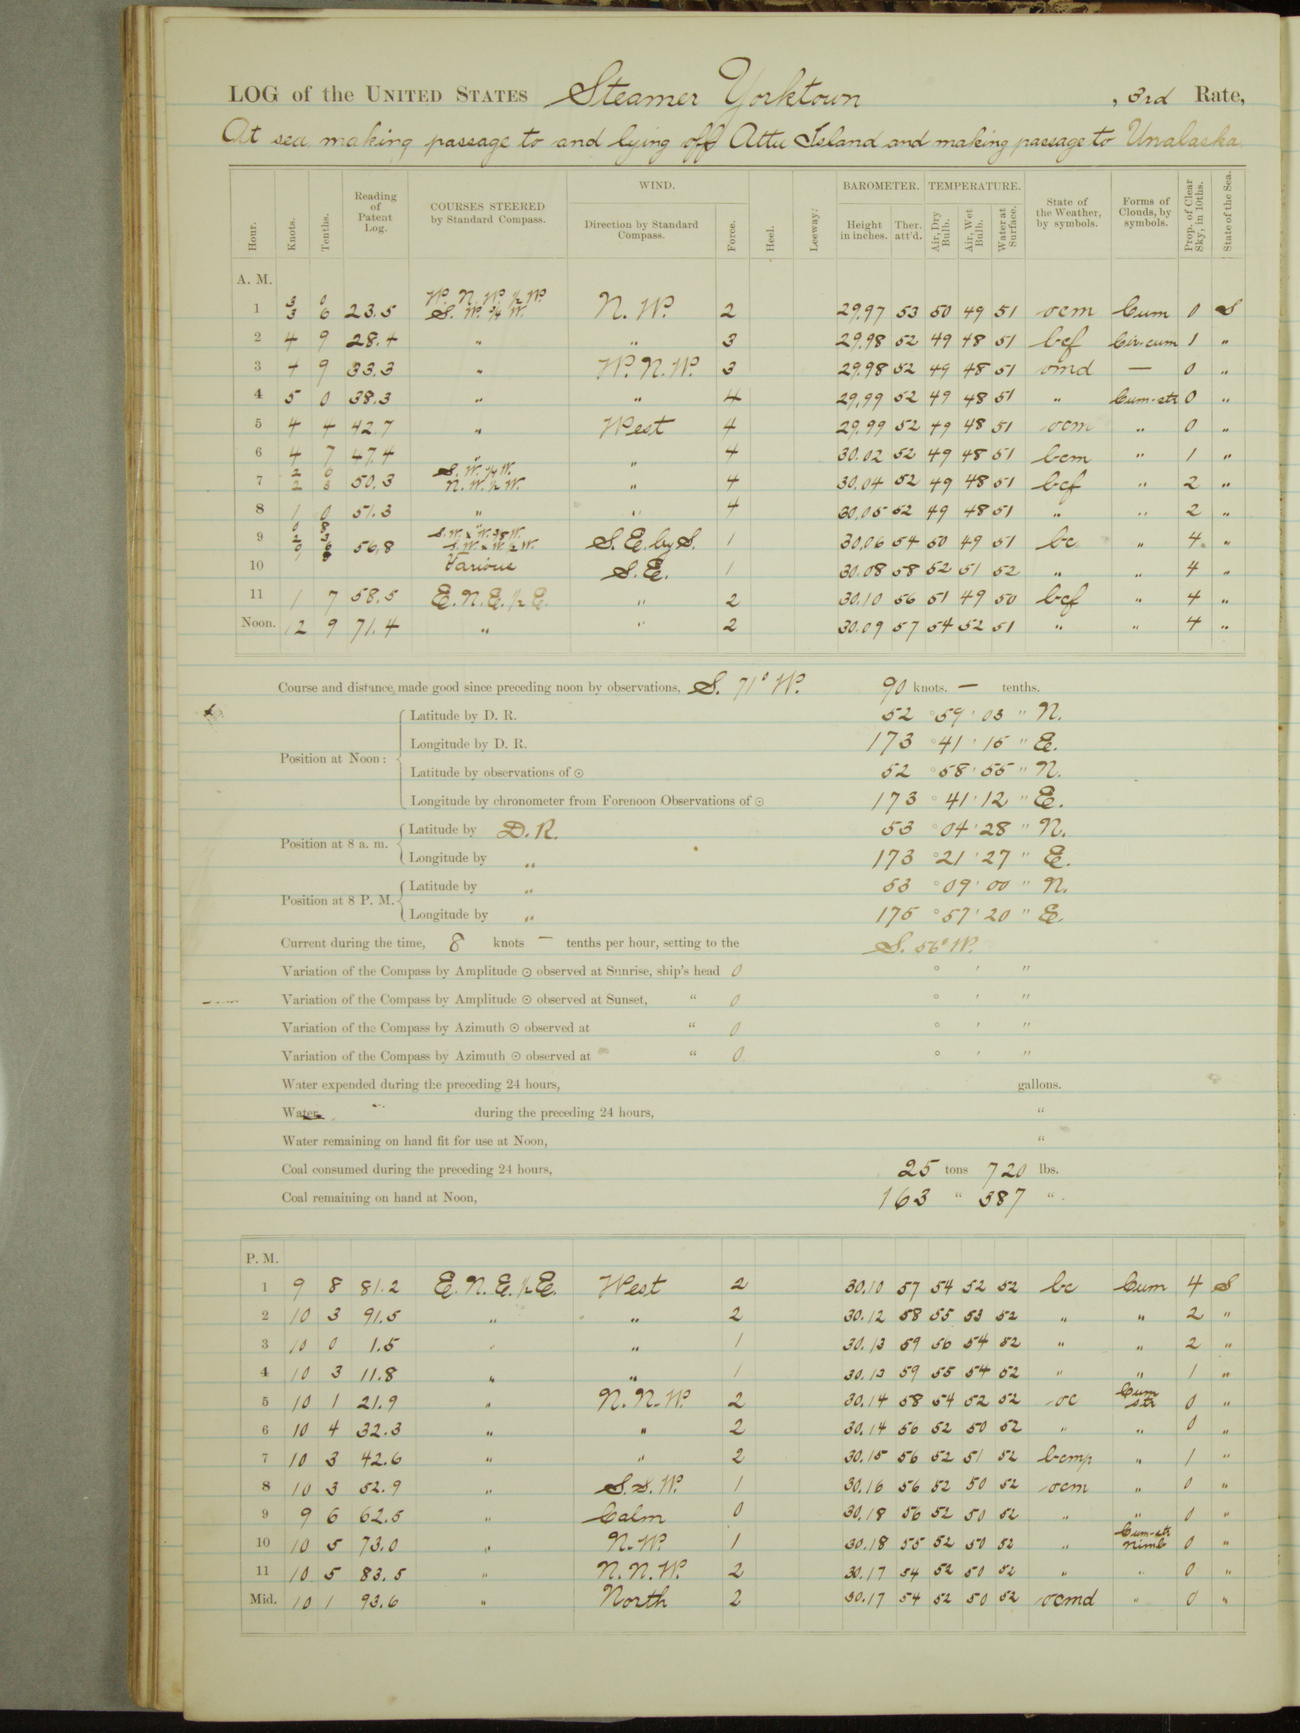 LOG of the UNITED STATES Steamer Yorktown, 3rd Rate,
At sea making passage to and lying off Attu Island and making passage to Unalaska
WIND. BAROMETER. TEMPERATURE.
Hour. Knots. Tenths. Reading of Patent Log. COURSES STEERED by Standard Compass. Direction by Standard Compass. Force. Heel. Leeway. Height in inches. Ther. att'd. Air, Dry Bulb. Air, Wet Bulb. Water at Surface. State of the Weather, by symbols. Forms of Clouds, by symbols. Prop. of Clear Sky, in 10ths. State of the Sea.
A. M.
3 0 W. N. W. 1/2 W.
1 3 6 23.5 S. W. 3/4 W. N. W. 2 29.97 53 50 49 51 ocm Cum 0 S
2 4 9 28.4 " " 3 29.98 52 49 48 51 bcf Cir-cum 1 "
3 4 9 33.3 " W. N. W. 3 29.98 52 49 48 51 omd — 0 "
4 5 0 38.3 " " 4 29.99 52 49 48 51 " Cum-str 0 "
5 4 4 42.7 " West 4 29.99 52 49 48 51 ocm " 0 "
6 4 7 47.4 " " 4 30.02 52 49 48 51 bcm " 1 "
2 0 S. W. 3/4 W.
7 2 3 50.3 N. W. 1/2 W. " 4 30.04 52 49 48 51 bcf " 2 "
8 1 0 51.3 " " 4 30.05 52 49 48 51 " " 2 "
9 56.8 S. E. by S. 1 30.06 54 50 49 51 bc " 4 "
10 Various S. E. 1 30.08 58 52 51 52 " " 4 "
11 1 7 58.5 E. N. E. 1/2 E. " 2 30.10 56 51 49 50 bcf " 4 "
Noon. 12 9 71.4 " " 2 30.09 57 54 52 51 " " 4 "
Course and distance made good since preceding noon by observations, S. 71° W. 90 knots. — tenths.
Position at Noon:
Latitude by D. R. 52 ° 59 ' 03 " N.
Longitude by D. R. 173 ° 41 ' 15 " E.
Latitude by observations of ☉ 52 ° 58 ' 55 " N.
Longitude by chronometer from Forenoon Observations of ☉ 173 ° 41 ' 12 " E.
Position at 8 a. m.
Latitude by D. R. 53 ° 04 ' 28 " N.
Longitude by " 173 ° 21 ' 27 " E.
Position at 8 P. M.
Latitude by " 53 ° 09 ' 00 " N.
Longitude by " 175 ° 57 ' 20 " E.
Current during the time, 8 knots — tenths per hour, setting to the S. 56° W.
Variation of the Compass by Amplitude ☉ observed at Sunrise, ship's head 0 ° ' "
Variation of the Compass by Amplitude ☉ observed at Sunset, " 0 ° ' "
Variation of the Compass by Azimuth ☉ observed at " 0 ° ' "
Variation of the Compass by Azimuth ☉ observed at " 0 ° ' "
Water expended during the preceding 24 hours, gallons.
Water during the preceding 24 hours, "
Water remaining on hand fit for use at Noon, "
Coal consumed during the preceding 24 hours, 25 tons 720 lbs.
Coal remaining on hand at Noon, 163 " 387 "
P. M.
1 9 8 81.2 E. N. E. 1/2 E. West 2 30.10 57 54 52 52 bc Cum 4 S
2 10 3 91.5 " " 2 30.12 58 55 53 52 " " 2 "
3 10 0 1.5 " " 1 30.13 59 56 54 52 " " 2 "
4 10 3 11.8 " " 1 30.13 59 55 54 52 " " 1 "
5 10 1 21.9 " N. N. W. 2 30.14 58 54 52 52 oc Cum str 0 "
6 10 4 32.3 " " 2 30.14 56 52 50 52 " " 0 "
7 10 3 42.6 " " 2 30.15 56 52 51 52 bcmp " 1 "
8 10 3 52.9 " S. S. W. 1 30.16 56 52 50 52 ocm " 0 "
9 9 6 62.5 " Calm 0 30.18 56 52 50 52 " " 0 "
10 10 5 73.0 " N. W. 1 30.18 55 52 50 52 " Cum-str Nimb 0 "
11 10 5 83.5 " N. N. W. 2 30.17 54 52 50 52 " " 0 "
Mid. 10 1 93.6 " North 2 30.17 54 52 50 52 ocmd " 0 "